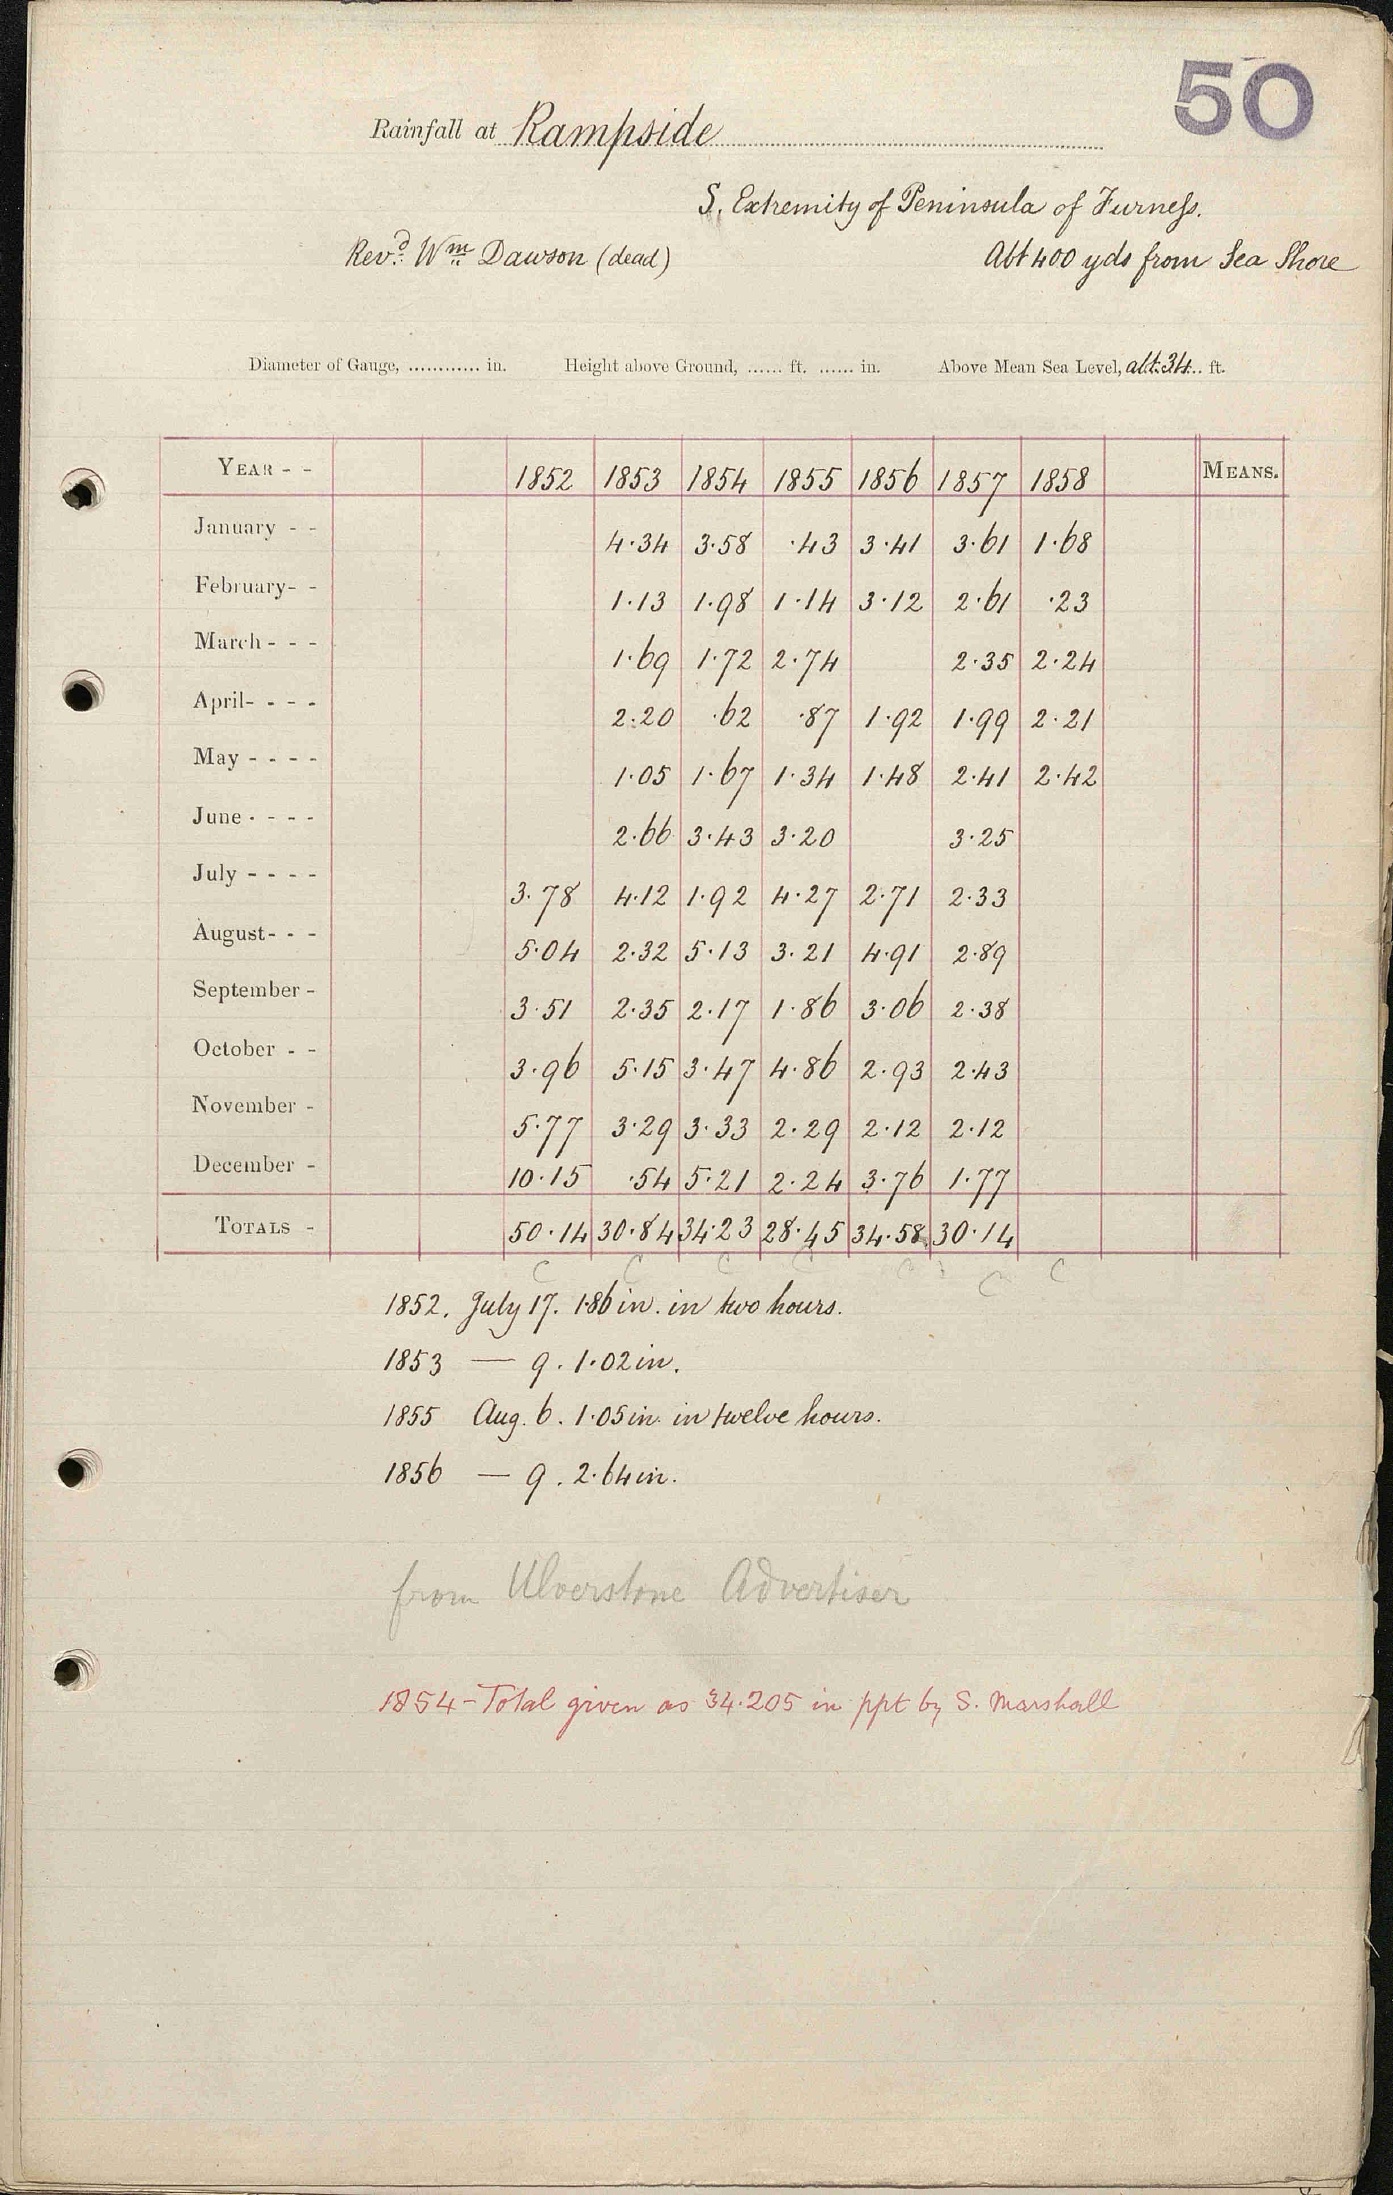 50
Rainfall at Rampside
S. Extremity of Peninsula of Furness.
Revd. Wm Dawson (dead) Abt 400 yds from Sea Shore
Diameter of Gauge, ............ in. Height above Ground, ...... ft. ...... in. Above Mean Sea Level, abt. 34 .. ft.
YEAR - - 1852 1853 1854 1855 1856 1857 1858 MEANS.
January - - 4.34 3.58 .43 3.41 3.61 1.68
February- - 1.13 1.98 1.14 3.12 2.61 .23
March - - - 1.69 1.72 2.74 2.35 2.24
April- - - - 2.20 .62 .87 1.92 1.99 2.21
May - - - - 1.05 1.67 1.34 1.48 2.41 2.42
June - - - - 2.66 3.43 3.20 3.25
July - - - - 3.78 4.12 1.92 4.27 2.71 2.33
August- - - 5.04 2.32 5.13 3.21 4.91 2.89
September - 3.51 2.35 2.17 1.86 3.06 2.38
October - - 3.96 5.15 3.47 4.86 2.93 2.43
November - 5.77 3.29 3.33 2.29 2.12 2.12
December - 10.15 .54 5.21 2.24 3.76 1.77
TOTALS - 50.14 30.84 34.23 28.45 34.58 30.14
C C C C C C C
1852. July 17. 1.86 in. in two hours.
1853 — 9. 1.02 in.
1855 Aug. 6. 1.05 in. in twelve hours.
1856 — 9. 2.64 in.
from Ulverstone Advertiser
1854 - Total given as 34.205 in ppt by S. Marshall